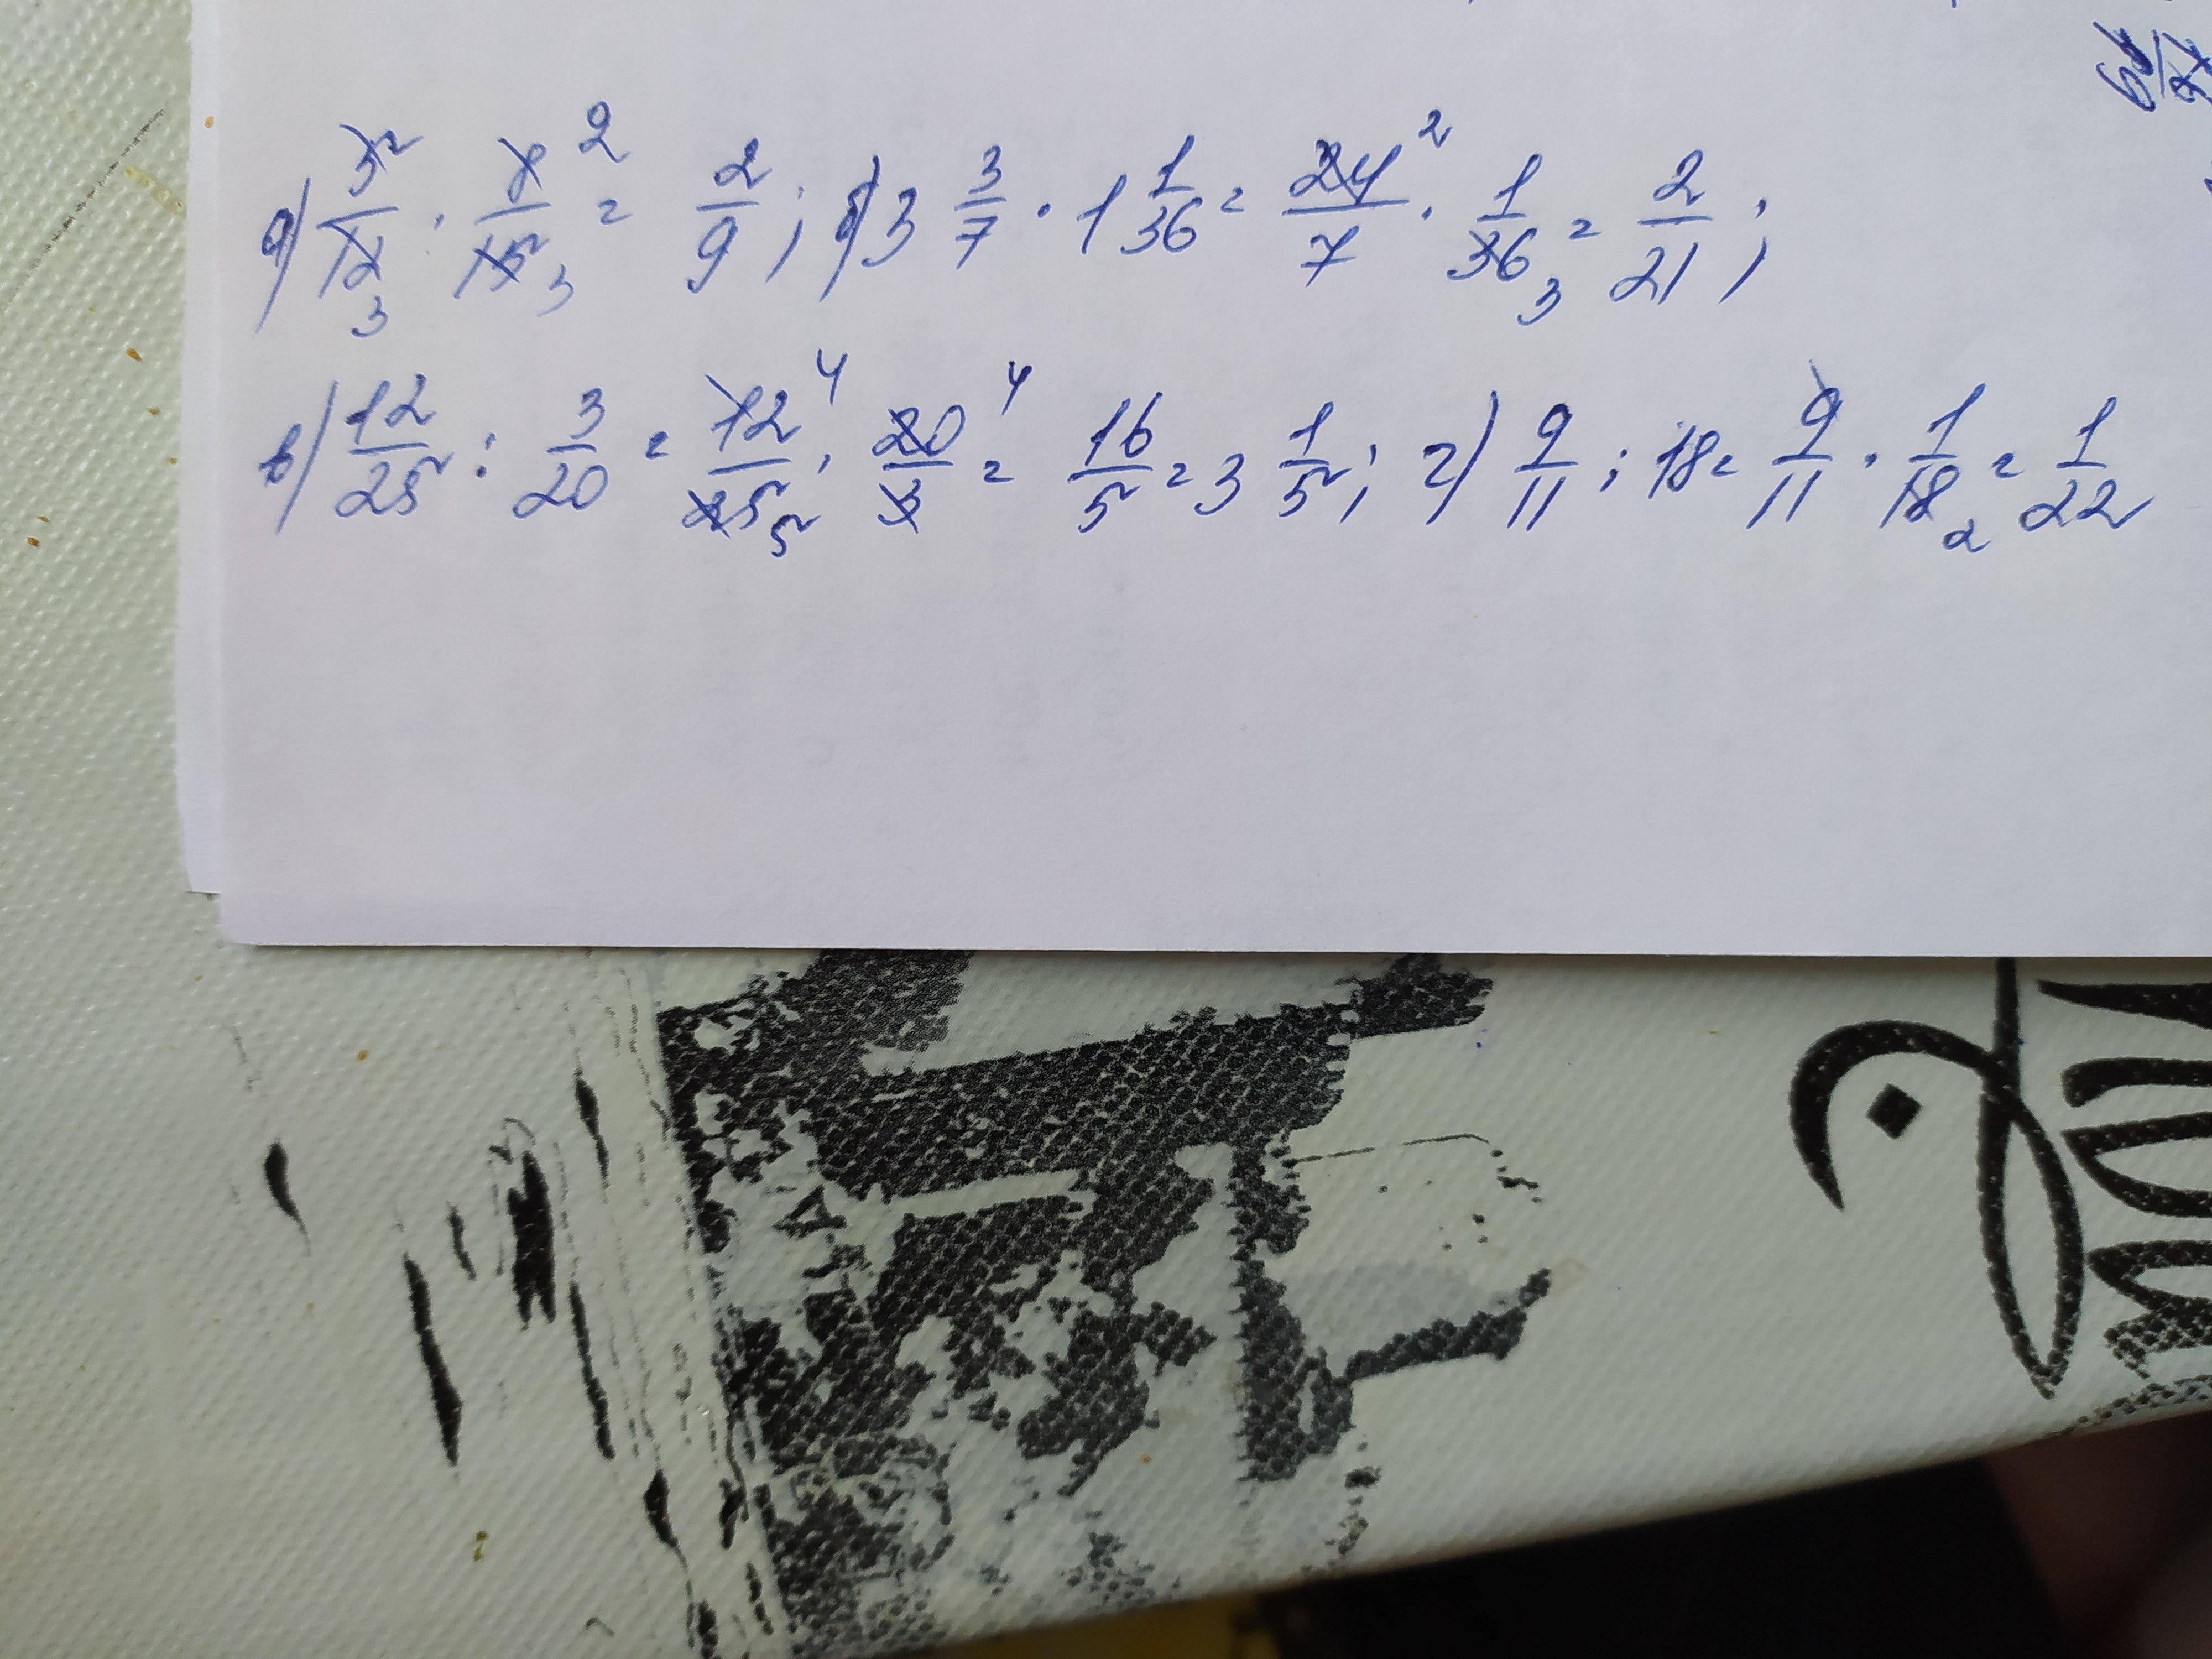 а) 5/12 · 8/15 = 2/9; б) 3 3/7 · 1 1/36 = 24/7 · 1/36 = 2/21;
3 3 2 2 3
в) 12/25 : 3/20 = 12/25 · 20/3 = 16/5 = 3 1/5; г) 9/11 : 18 = 9/11 · 1/18 = 1/22
4 4 5 2